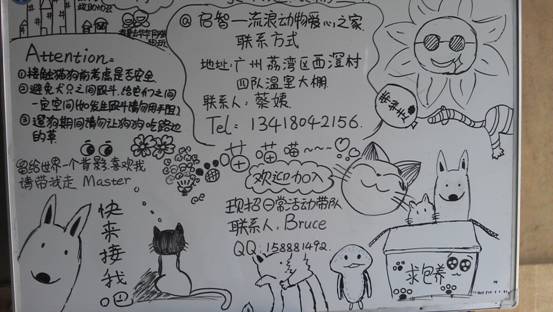 Attention:
①接触猫狗前考虑是否安全
②避免犬只之间殴斗,给它们之间
③遛狗期间请勿让狗狗吃路边
的草
留给世界一个背影,喜欢我
请带我走 Master
快来接我吧
@启智—流浪动物爱心之家
联系方式
地址:广州荔湾区西滘村
四队温里大棚
联系人:蔡姨
Tel: 13418042156.
喵~~~
欢迎加入
现招日常活动带队
联系人: Bruce
QQ: 158881492.
求包养